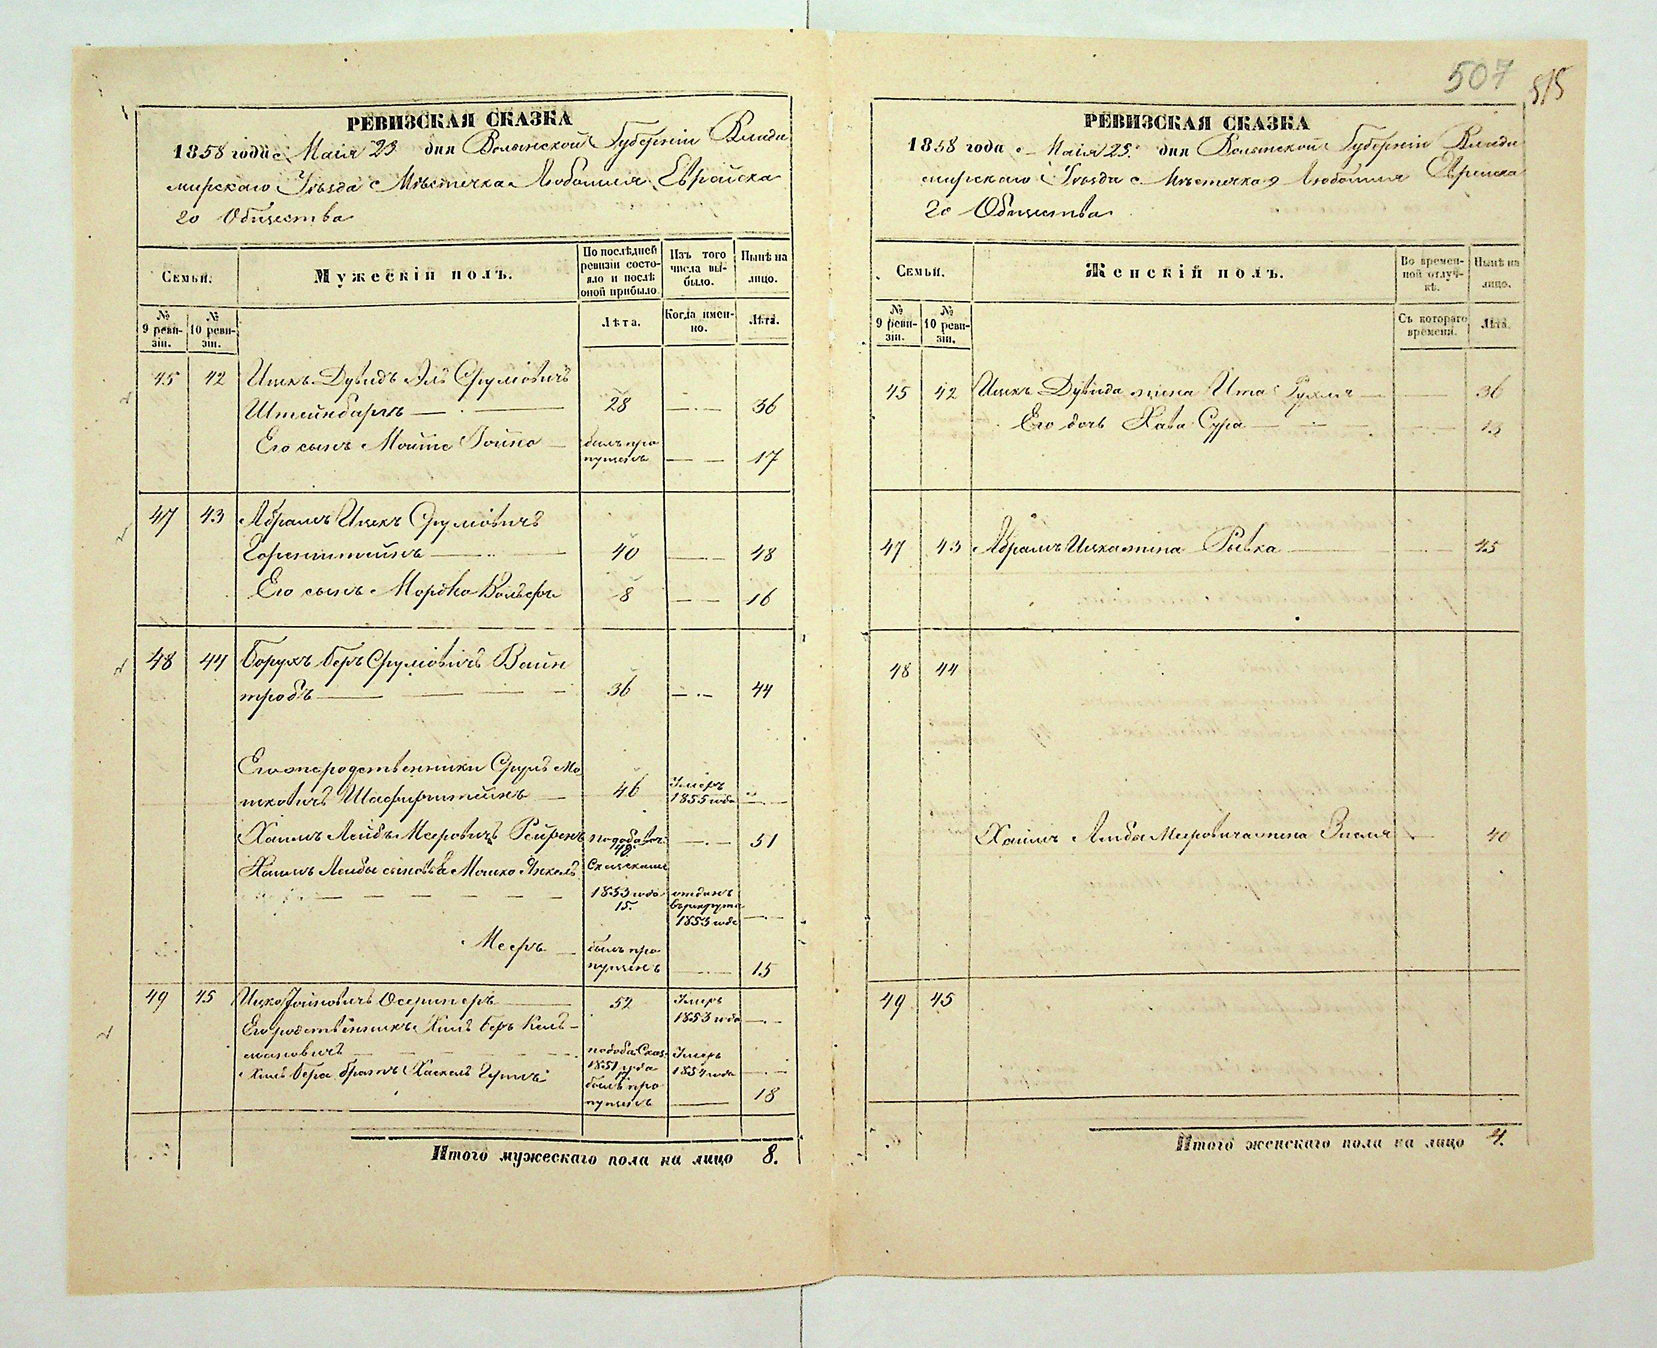 507
515
РЕВИЗСКАЯ СКАЗКА
1858 года Маія 23 дня Волынской Губерніи Влади
мирскаго Уѣзда Мѣстечка Любомля Еврейска
го Общества
Семьи.
Мужескій полъ.
По послѣдней ревизіи состояло и послѣ оной прибыло
Изъ того числа выбыло.
Нынѣ на лицо.
№ 9 ревизіи.
№ 10 ревизіи.
Лѣта.
Когда именно.
Лѣта.
45 42 Ицкъ Дувидъ Эль Сруловичъ
Штейнбаргъ 28 36
Его сынъ Мойше Йойно былъ про
пущенъ 17
47 43 Абрамъ Ицкъ Сруловичъ
Горенштейнъ 40 48
Его сынъ Мордко Вольфъ 8 16
48 44 Борухъ Беръ Сруловичъ Вайн
тробъ 36 44
Срулъ Мо
шковичъ Шафирштейнъ 46 Умеръ 1855 года
Хаимъ Лейбъ Мееровичъ 51
Хаимъ Лейбы сыновья Мошко Янкель
1853 года 15. отданъ въ рекруты 1853 года
Мееръ былъ про
пущенъ 15
49 45 Ицко Йойновичъ 52 Умеръ 1853 года
Его родственникъ Хаимъ Беръ Кель
мановичъ 1851 года Умеръ 1854 года
Хаимъ Бера братъ Хаскель былъ про
пущенъ 18
Итого мужескаго пола на лицо 8.
РЕВИЗСКАЯ СКАЗКА
1858 года Маія 23 дня Волынской Губерніи Влади
мирскаго Уѣзда Мѣстечка Любомля Еврейска
го Общества
Семьи.
Женскій полъ.
Во временной отлучкѣ.
Нынѣ на лицо.
№ 9 ревизіи.
№ 10 ревизіи.
Съ котораго времени.
Лѣта.
45 42 Ицкъ Дувида жена Ита Рухля 36
Его дочь Хава Сура 13
47 43 Абрамъ Ицка жена Рывка 45
48 44
Хаимъ Лейбы Мееровича жена 40
49 45
Итого женскаго пола на лицо 4.